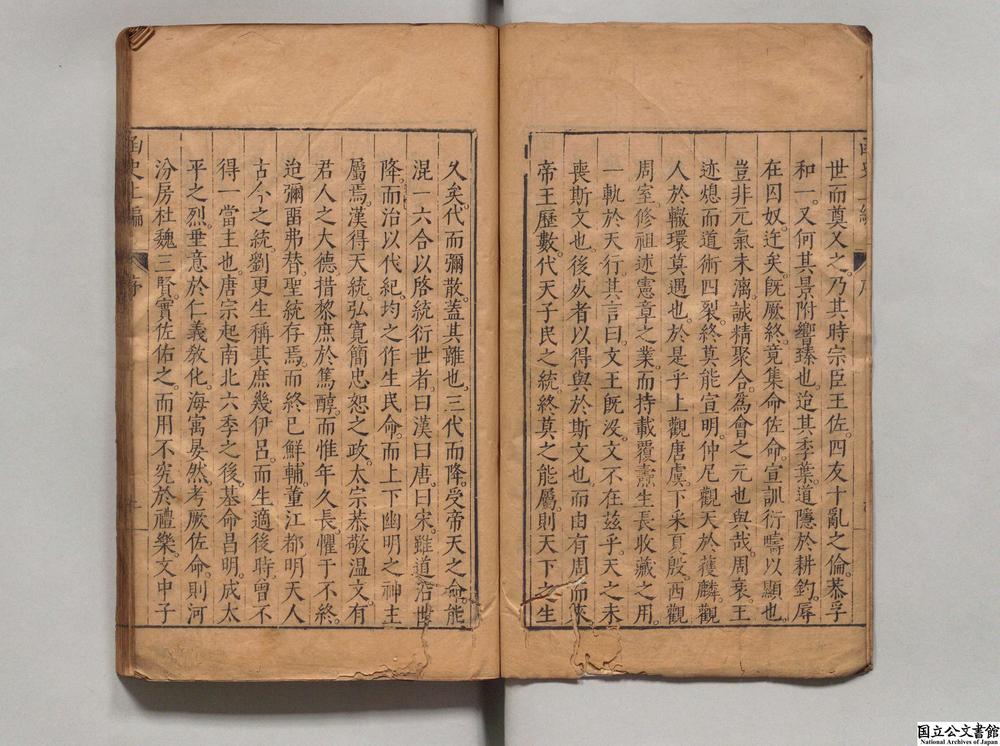 世而奠乂之。乃其時宗臣王佐。四友十亂之倫。恭孚
和一。又何其景附嚮臻也。迨其季葉。道隱於耕釣。辱
在囚奴。迕矣。旣厥終竟集命佐命。宣訓衍疇以顯也。
豈非元氣未漓。誠精聚合。爲會之元也與哉。周衰。王
迹熄而道術四裂。終莫能宣明。仲尼觀天於獲麟。觀
人於轍環莫遇也。於是乎上觀唐虞。下采夏殷。西觀
周室。修祖述憲章之業。而持載覆燾。生長收藏之用。
一軌於天行。其言曰。文王旣沒。文不在茲乎。天之未
喪斯文也。後死者以得與於斯文也。而由有周而來
帝王歷數。代天子民之統。終莫之能屬。則天下之生
久矣。代而彌散。蓋其離也。三代而降。受帝天之命。能
混一六合以啓統衍世者。曰漢曰唐。曰宋。雖道沿世
降。而治以代紀。均之作生民命。而上下幽明之神主
屬焉。漢得天統。弘寬簡忠恕之政。太宗恭敬温文。有
君人之大德。措黎庶於篤醇。而惟年久長。懼于不終。
迨彌留弗替。聖統存焉。而終已鮮輔。董江都明天人
古今之統。劉更生稱其庶幾伊呂。而生適後時。曾不
得一當主也。唐宗起南北六季之後。基命昌明。成太
平之烈。垂意於仁義敎化。海寓晏然。考厥佐命。則河
汾房杜魏三賢。實佐佑之。而用不究於禮樂。文中子
函史上編
序
国立公文書館
National Archives of Japan